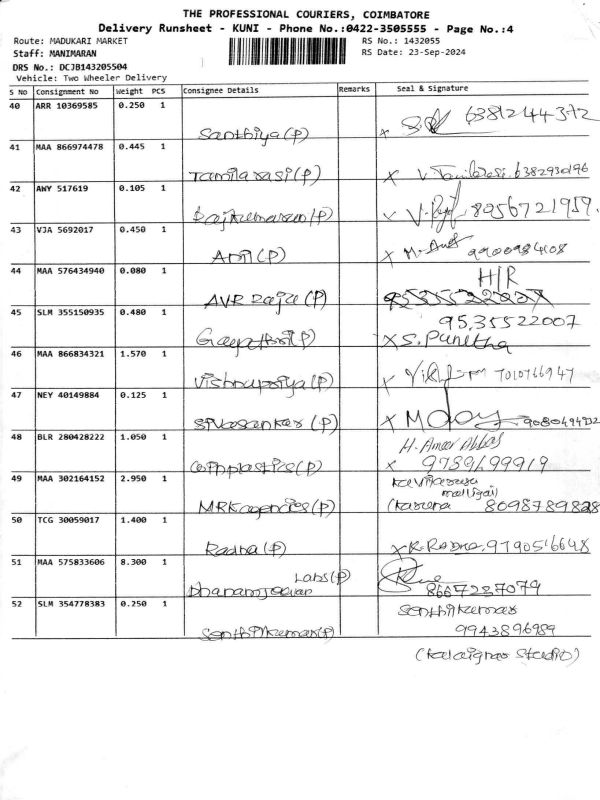 THE PROFESSIONAL COURIERS, COIMBATORE
Delivery Runsheet - KUNI - Phone No.:0422-3505555 - Page No.:4
Route: MADUKARI MARKET RS No.: 1432055
Staff: MANIMARAN RS Date: 23-Sep-2024
DRS No.: DCJB143205504
Vehicle: Two Wheeler Delivery
S No Consignment No Weight PCS Consignee Details Remarks Seal & Signature
40 ARR 10369585 0.250 1
Santhiya (P) x 6381244372
41 MAA 866974478 0.445 1
Tamilarasi (P) x 6382930196
42 AWY 517619 0.105 1
Rajkumaran (P) x 8056721959
43 VJA 5692017 0.450 1
Anil (P) x 9900984108
44 MAA 576434940 0.080 1 H/R
AVR Raja (P)
45 SLM 355150935 0.480 1 9535522007
Gayathri (P) x S. Punetha
46 MAA 866834321 1.570 1
Vishnupriya (P) x 7010766947
47 NEY 40149884 0.125 1
Sivasankar (P) x
48 BLR 280428222 1.050 1 H. Ameer Abbas
x 9739699919
49 MAA 302164152 2.950 1
MRK agencies (P) 8098789828
50 TCG 30059017 1.400 1
Radha (P) x R. Radha. 9790516648
51 MAA 575833606 8.300 1 Labs (P)
8667237079
52 SLM 354778383 0.250 1 Senthilkumar
Senthilkumar (P) 9943896989
(Kalaignar Studio)